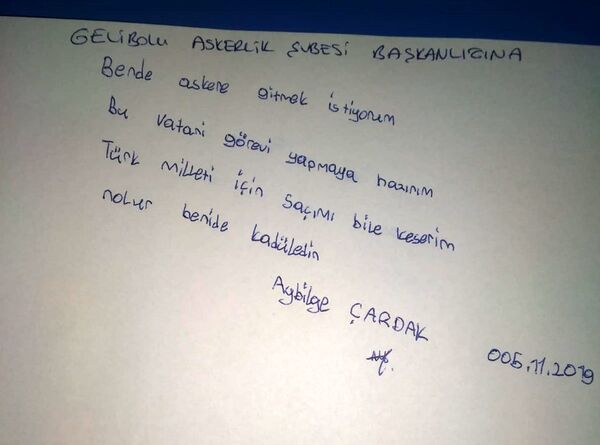 GELİBOLU ASKERLİK ŞUBESİ BAŞKANLIĞINA
Bende askere gitmek istiyorum
Bu vatani görevi yapmaya hazırım
Türk milleti için saçımı bile keserim
nolur benide kabüledin
Aybilge ÇARDAK
005.11.2019